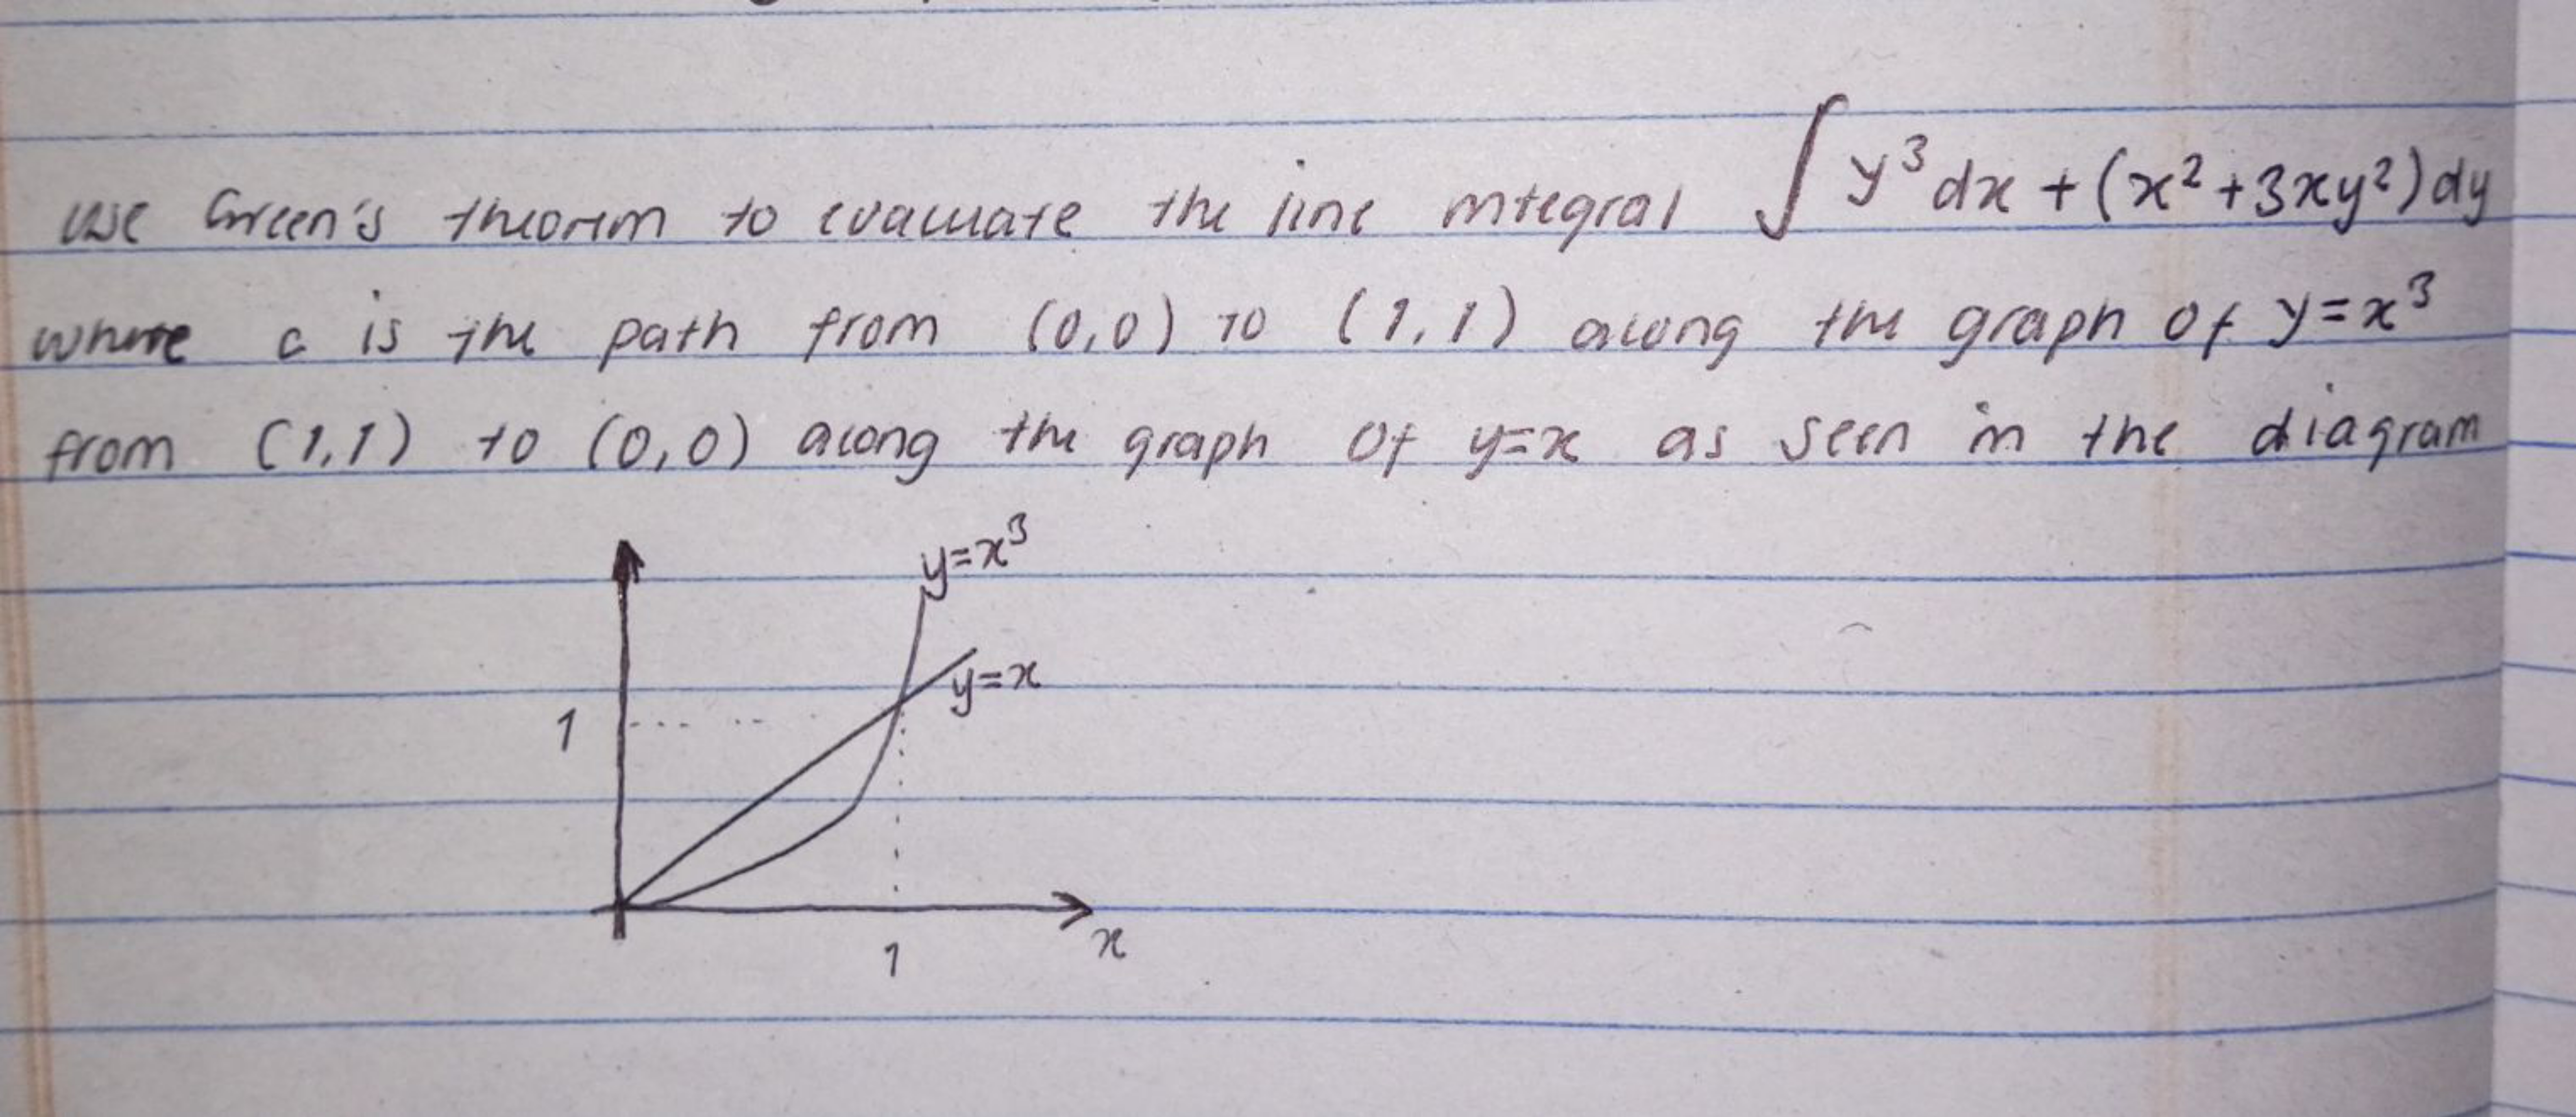 use Green's theorem to evaluate the line integral ∫ y³dx + (x² + 3xy²)dy
where c is the path from (0,0) to (1,1) along the graph of y=x³
from (1,1) to (0,0) along the graph of y=x as seen in the diagram
y=x³
y=x
1
1
x